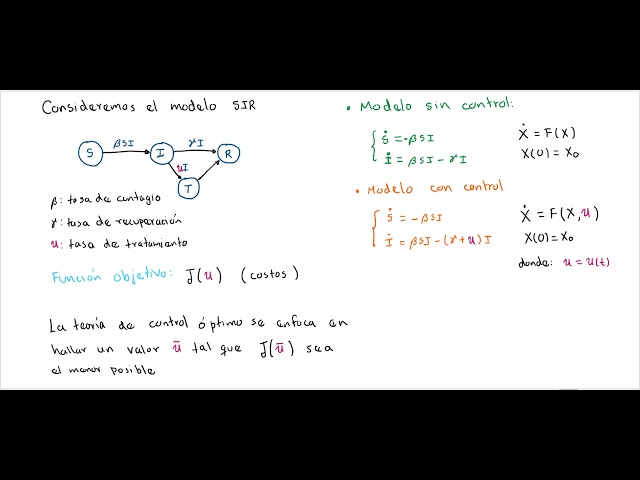 Consideremos el modelo SIR
S βSI I γI R
uI
T
β: tasa de contagio
γ: tasa de recuperación
u: tasa de tratamiento
Función objetivo: J(u) (costos)
La teoría de control óptimo se enfoca en
hallar un valor ū tal que J(ū) sea
el menor posible
• Modelo sin control:
Ṡ = -βSI
İ = βSI - γI
Ẋ = F(X)
X(0) = X₀
• Modelo con control
Ṡ = -βSI
İ = βSI - (γ + u) I
Ẋ = F(X, u)
X(0) = X₀
donde: u = u(t)